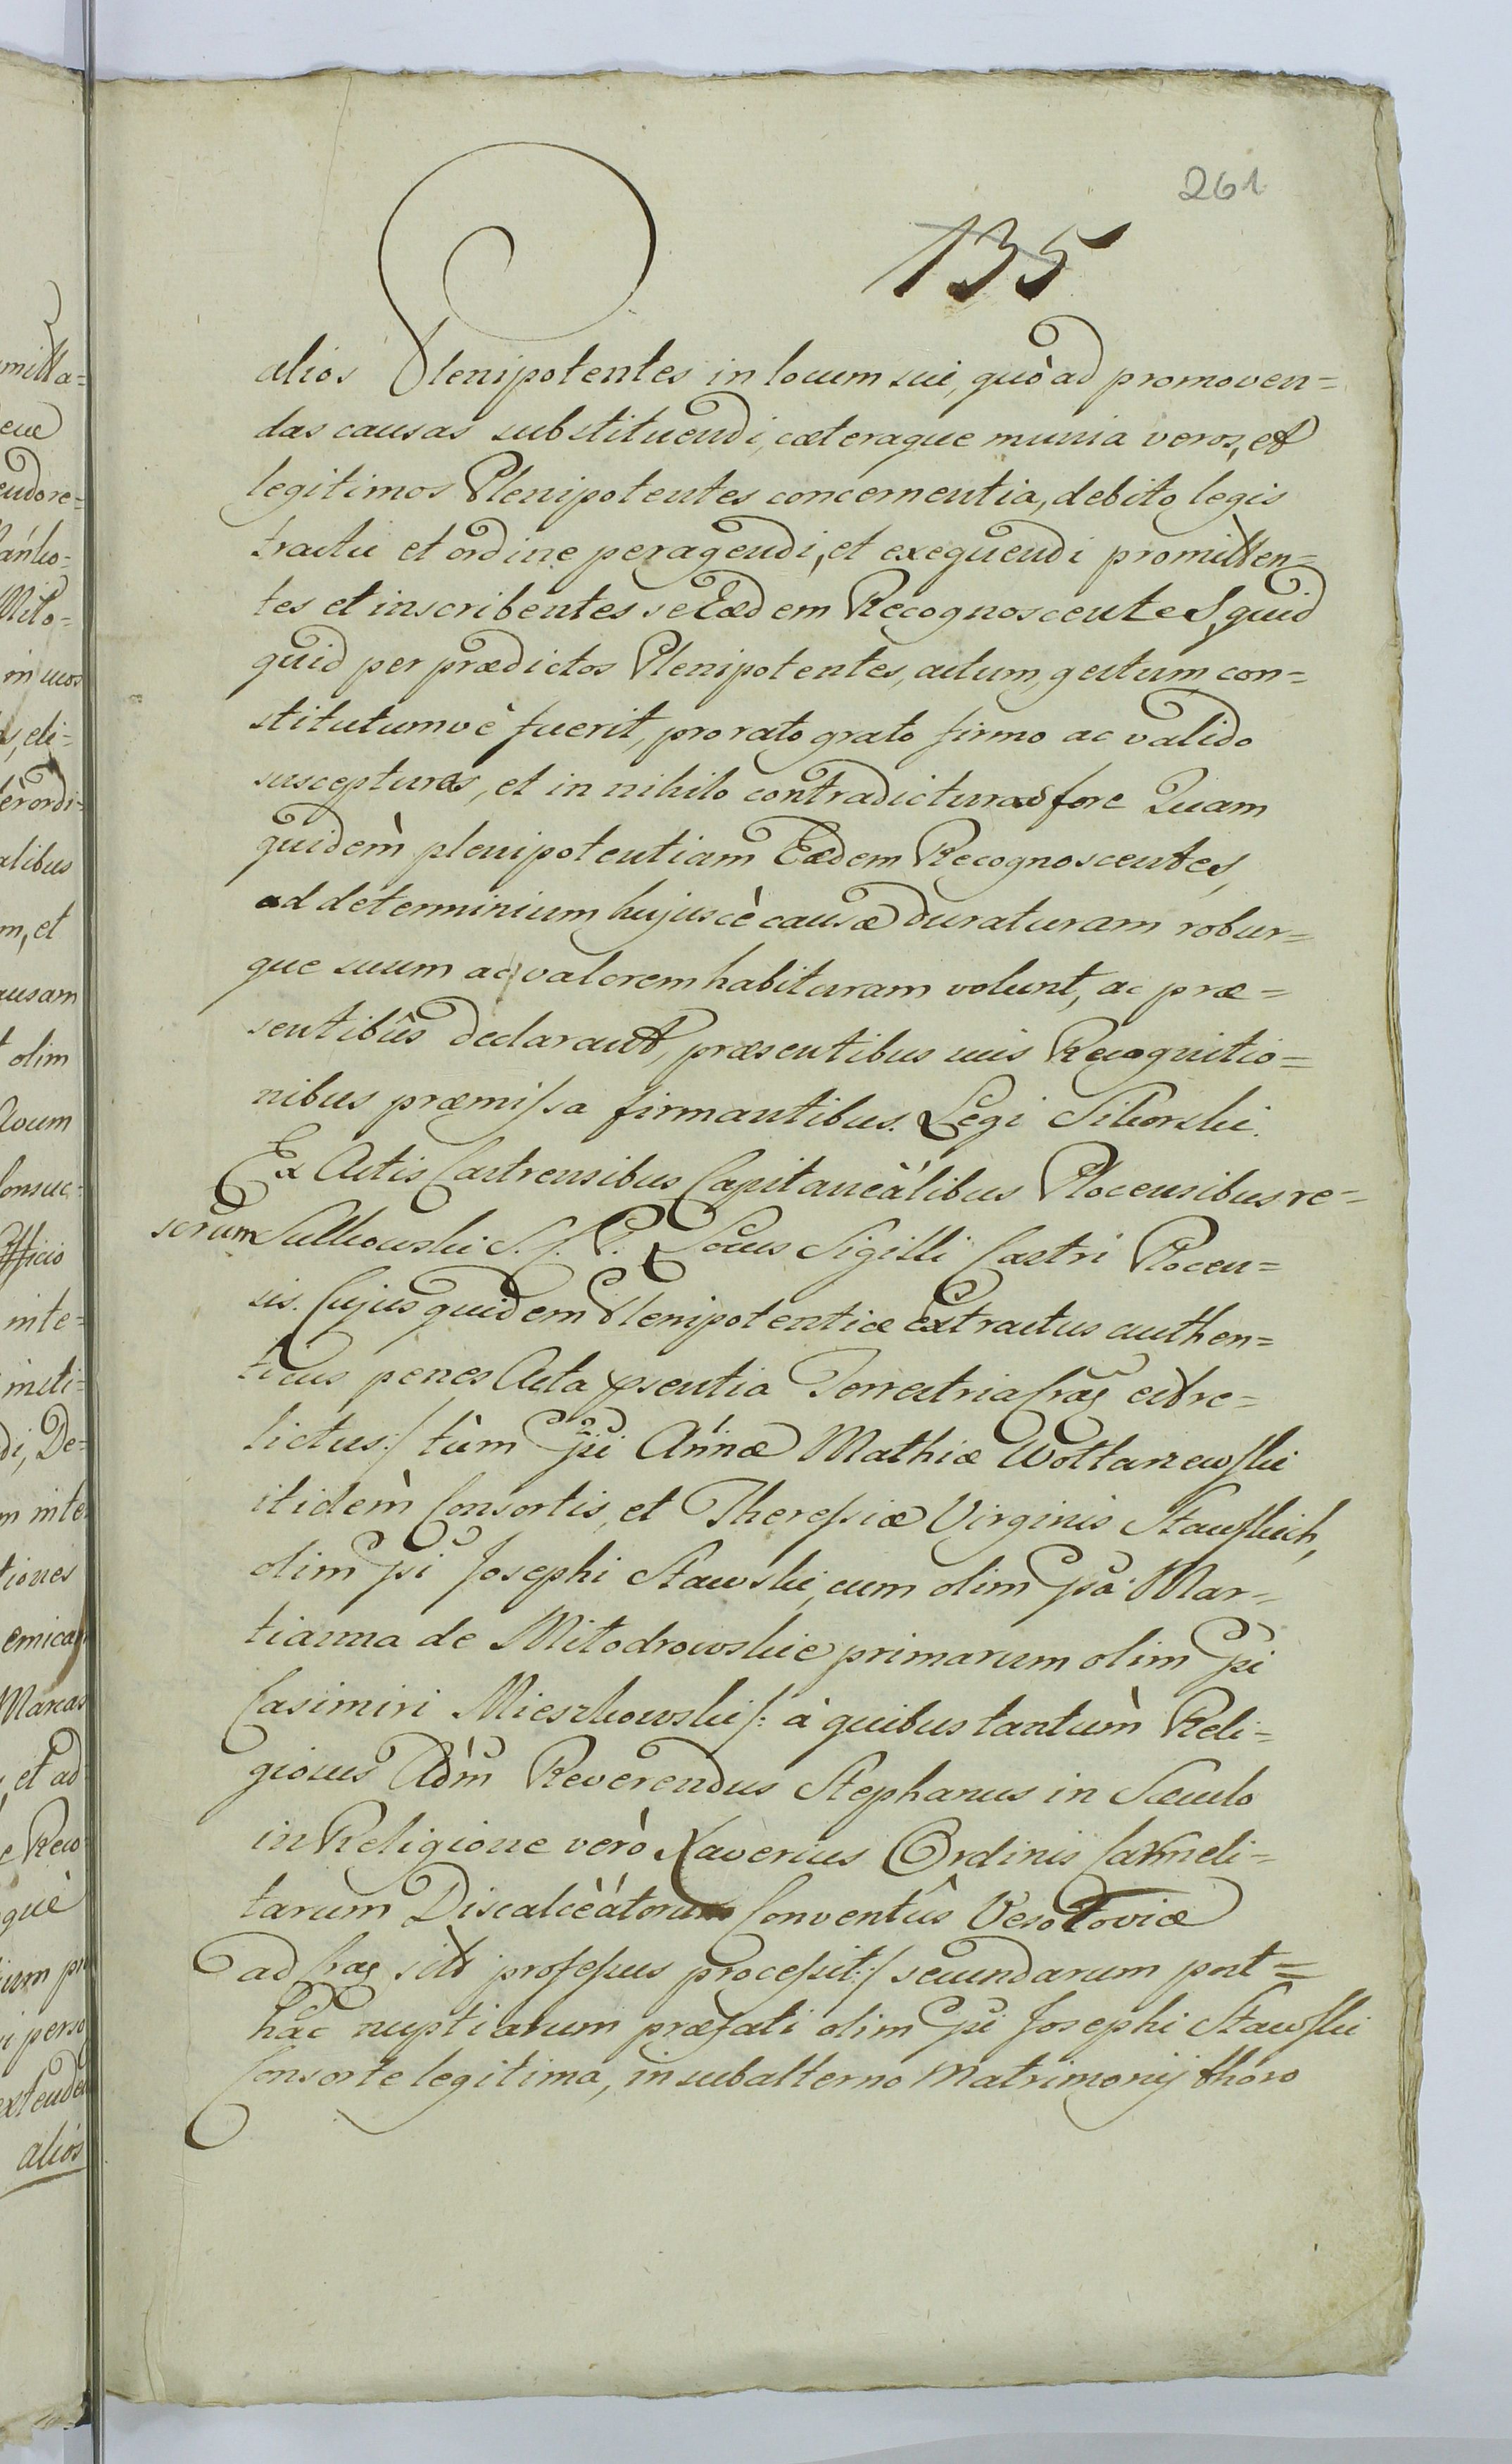 261
135
alios Plenipotentes in locum sui, quò ad promoven=
das causas substituendi, cæteraque munia veros, et
legitimos Plenipotentes concernentia, debito legis
tractu et ordine peragendi, et exequendi promitten=
tes et inscribentes se Eædem Recognoscentes, quid
quid per prædictos Plenipotentes, actum, gestum con=
stitutumvè fuerit, pro rato grato firmo ac valido
suscepturas, et in nihilo contradicturas fore Quam
quidem̀ plenipotentiam Eædem Recognoscentes,
ad determinium hujuscè causæ duraturam robur=
que suum ac valorem habituram volunt, ac præ=
sentibûs declarant, præsentibus suis Recognitio=
nibus præmissa firmantibus. Legi Sikorski.
Ex Actis Castrensibus Capitaneálibus Plocensibus re=
scrum Sulkowski S. C. P. Locus Sigilli Castri Plocen=
sis. Cujus quidem Plenipotentiæ extractus authen=
ticus penes Acta psentia Terrestria Craē est re=
lictus:/ tùm Gsi Annæ Mathiæ Wottarzewski
itidem̀ Consortis, et Theresiæ Virginis Stawskich,
olim Gsi Josephi Stawski, cum olim Gsa Mar=
tianna de Mitodrowskie primarum olim Gsi
Casimiri Mieszkowski /: à quibus tantum̀ Reli=
giosus Adm̃ Reverendus Stephanus in Sæculo
in Religione verò Xaverius Ordinis Carmeli=
tarum Discalceátorum Conventûs Vesotoviæ
ad Crae siti professus processit:/ secundarum post=
hac nuptiarum præfati olim Gsi Josephi Stawski
Consorte legitima, in subalterno Matrimonij thoro